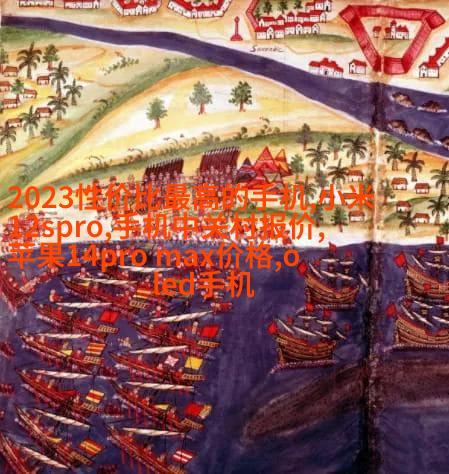 2023性价比最高的手机,小米
12spro,手机中关村报价,
苹果14pro max价格,o
led手机